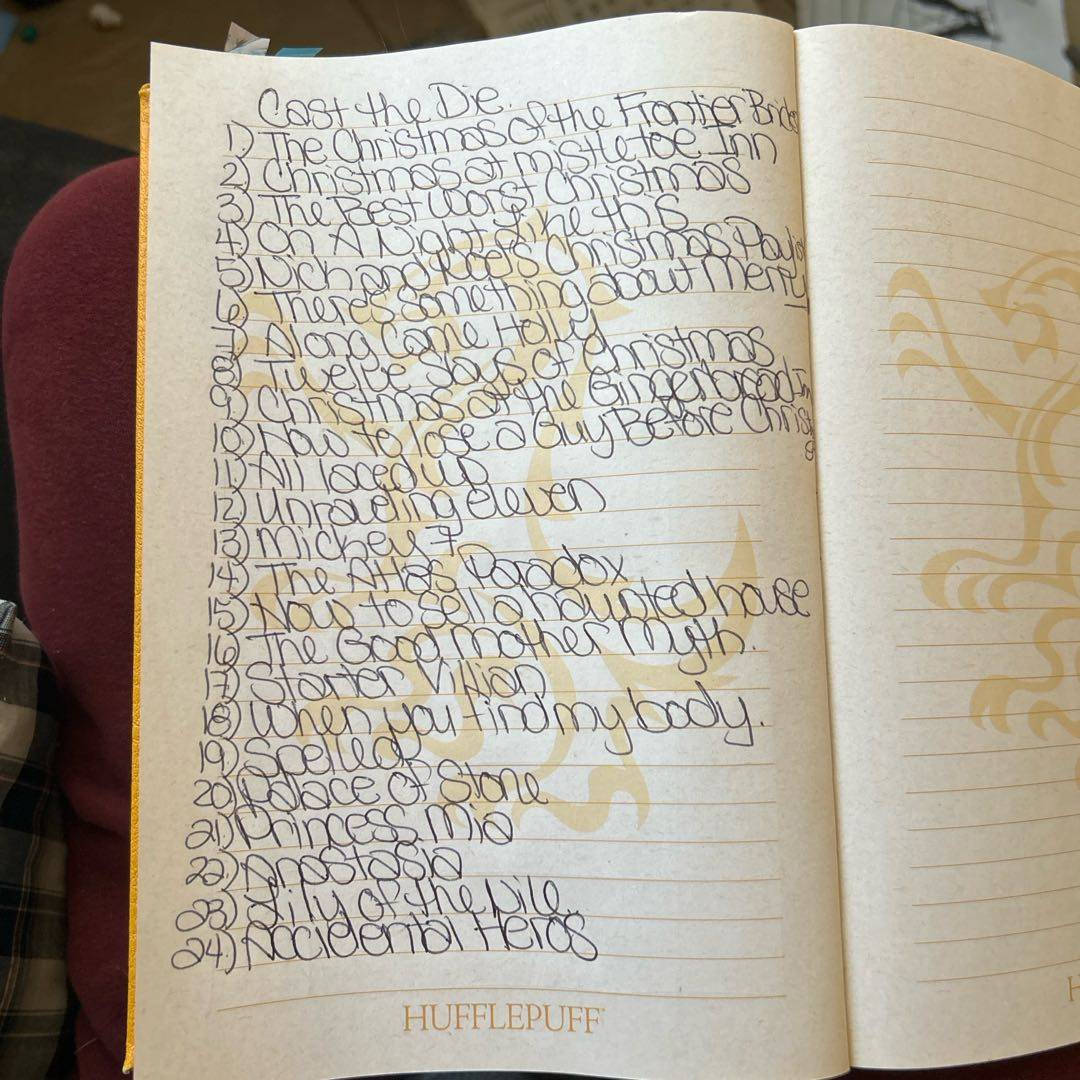 Cast the Die.
1) The Christmas Of the Frontier Brides
2) Christmas at mistletoe Inn
3) The Best Worst Christmas
4) On A Night like this
5) Nick and Noel's Christmas Playlist
6) There's something about Merry
7) Along Came Holly
8) Twelve days of Christmas
9) Christmas at the Gingerbread Inn
10) How to lose a Guy Before Christ
11) All laced up
12) Unraveling eleven
13) Mickey 7
14) The Atlas Paradox
15) How to sell a haunted house
16) The Good mother Myth.
17) Starter Villian
18) When you find my body.
19)
20) Palace of Stone
21) Princess Mia
22) Anastasia
23) Lily of the Nile.
24) Accidental Heros
HUFFLEPUFF